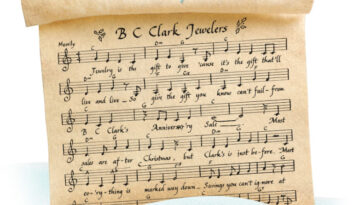 B C Clark Jewelers
Merrily
Jewelry is the gift to give 'cause it's the gift that'll
live and live — So give the gift you know can't fail - from
B C Clark's Annivers'ry Sale — Most
sales are af-ter Christmas, but Clark's is just be-fore. Most
ev'ry-thing is marked way down. Savings you can't ig-nore at